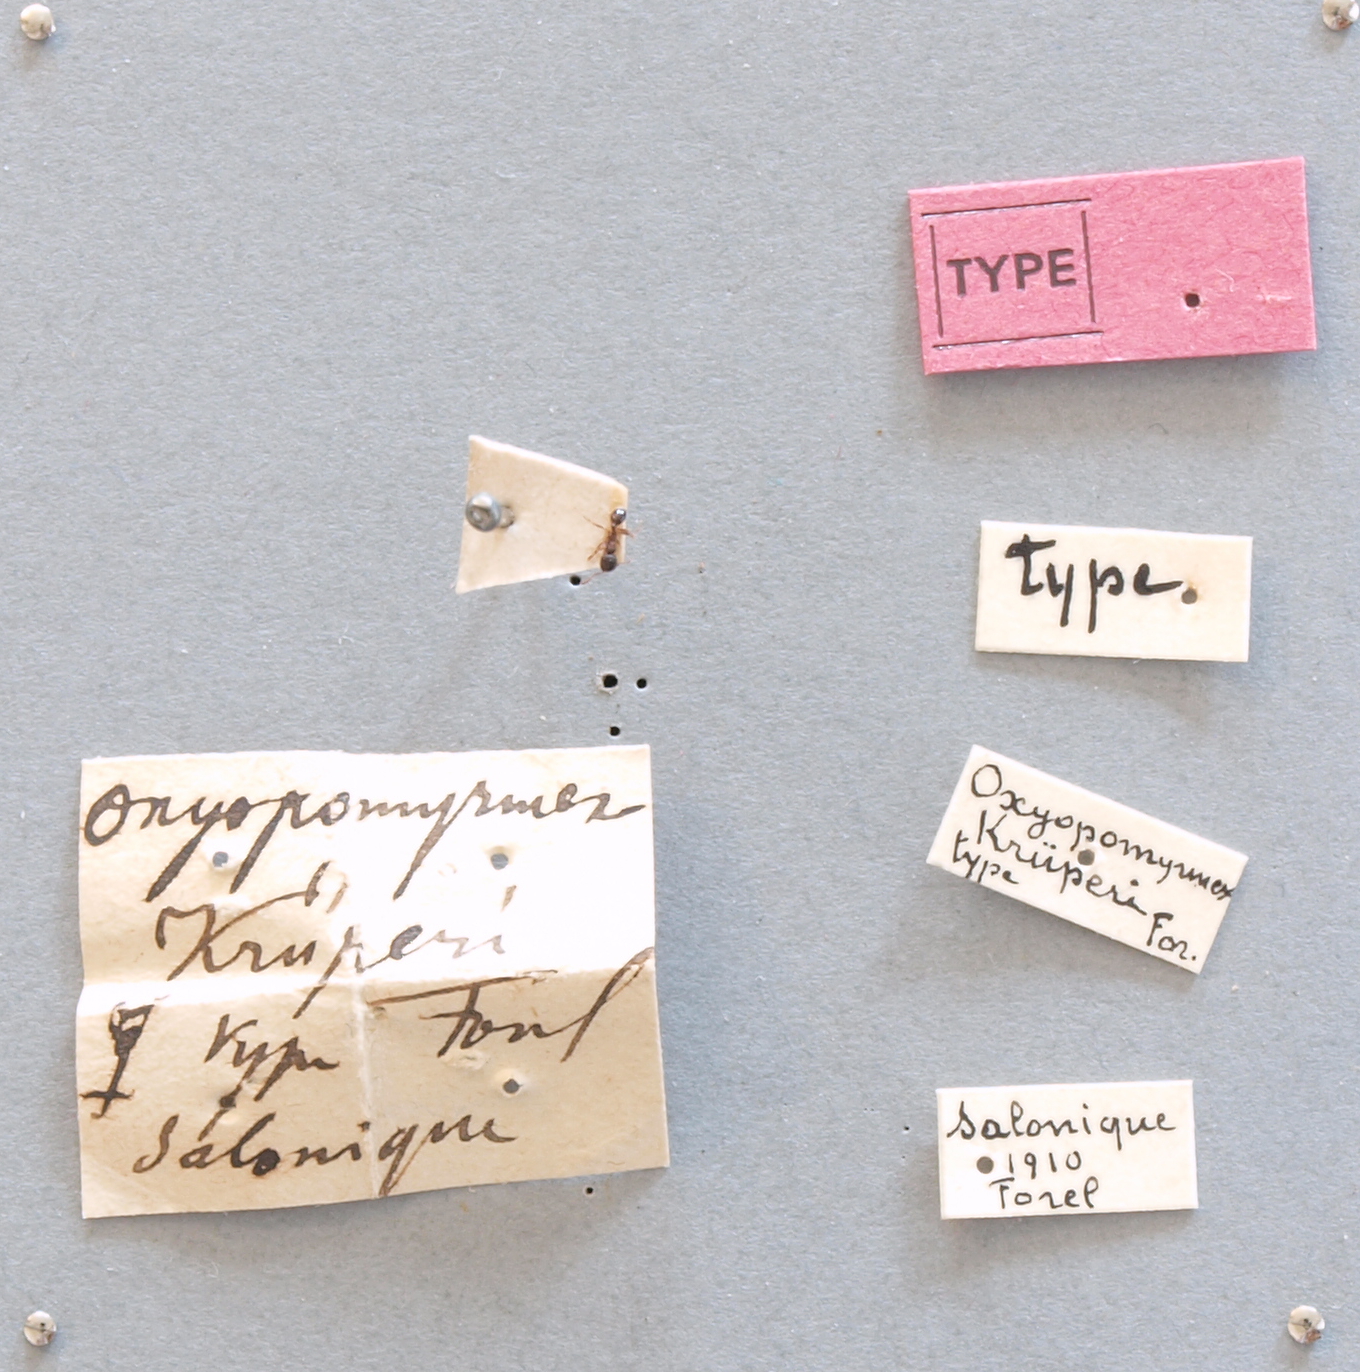 TYPE
type.
Oxyopomyrmex
Krüperi
type
For.
Salonique
1910
Forel
Oxyopomyrmex
Krüperi
☿ Type Forel
Salonique